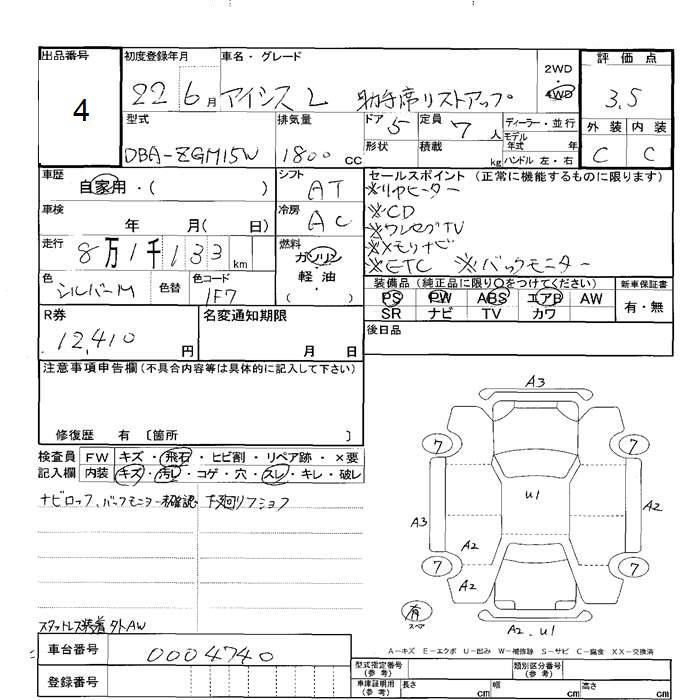 出品番号 初度登録年月 車名・グレード 評価点
4 22 6月 アイシス L 助手席リフトアップ 2WD 4WD 3.5
型式 排気量 ドア 5 定員 7人 ディーラー・並行 外装 内装
DBA-ZGM15W 1800cc 形状 積載 kg モデル年式 年 ハンドル 左・右 C C
車歴 自家用・( ) シフト AT セールスポイント (正常に機能するものに限ります)
※リヤヒーター
車検 年 月( 日) 冷房 AC ※CD
※ワンセグTV
走行 8万1千133km 燃料 ガソリン・軽油 ( ) ※メモリナビ
※ETC ※バックモニター
色 シルバーM 色替 色コード 1F7 装備品 (純正品に限り○をつけてください) 新車保証書
PS PW ABS エアB AW 有・無
SR ナビ TV カワ
R券 12,410円 名変通知期限 月 日 後日品
注意事項申告欄 (不具合内容等は具体的に記入して下さい)
修復歴 有 〔箇所 〕
検査員 FW キズ・飛石・ヒビ割・リペア跡・×要
記入欄 内装 キズ・汚レ・コゲ・穴・スレ・キレ・破レ
ナビロック、バックモニター未確認 下廻リフショク
A3
7 7
U1
A3 A2
A2
7 7
A2
有 スペア
A2. U1
スタットレス装着 夕トAW
A-キズ E-エクボ U-凹み W-補修跡 S-サビ C-腐食 XX-交換済
車台番号 0004740
登録番号
型式指定番号 (参考) 類別区分番号 (参考)
車庫証明用 (参考) 長さ cm 幅 cm 高さ cm